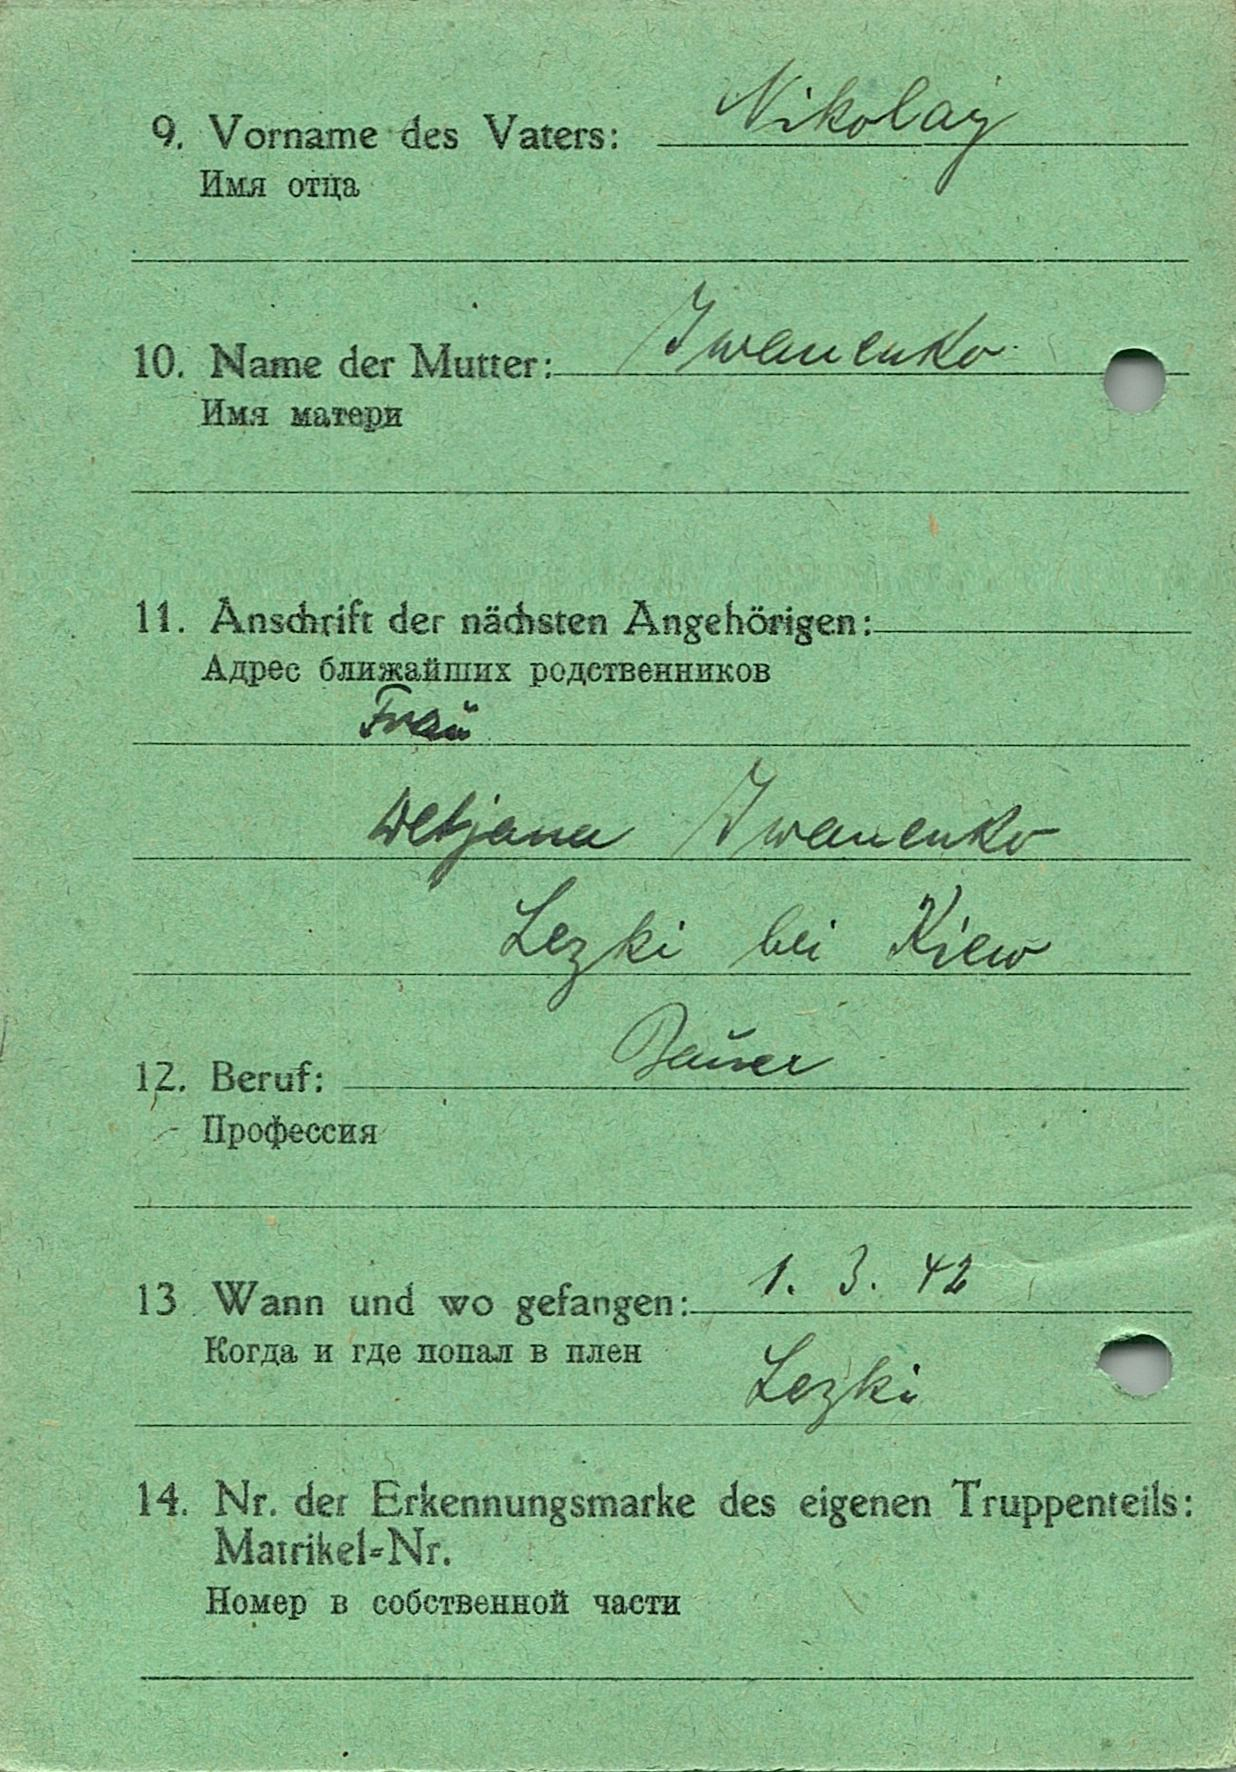 9. Vorname des Vaters: Nikolaj
Имя отца
10. Name der Mutter: Iwanenko
Имя матери
11. Anschrift der nächsten Angehörigen:
Адрес ближайших родственников
Frau
Iwanenko
Lezki bei Kiew
12. Beruf: Bauer
Профессия
13 Wann und wo gefangen: 1. 3. 42
Когда и где попал в плен
Lezki
14. Nr. der Erkennungsmarke des eigenen Truppenteils:
Matrikel-Nr.
Номер в собственной части